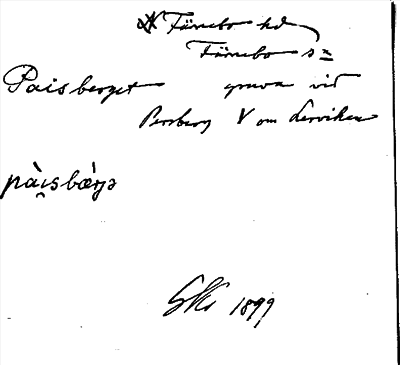 Färnebo hd
Färnebo sn
Paisberget gruva vid
Persberg V om Lerviken
pàisbær̀jə
1899